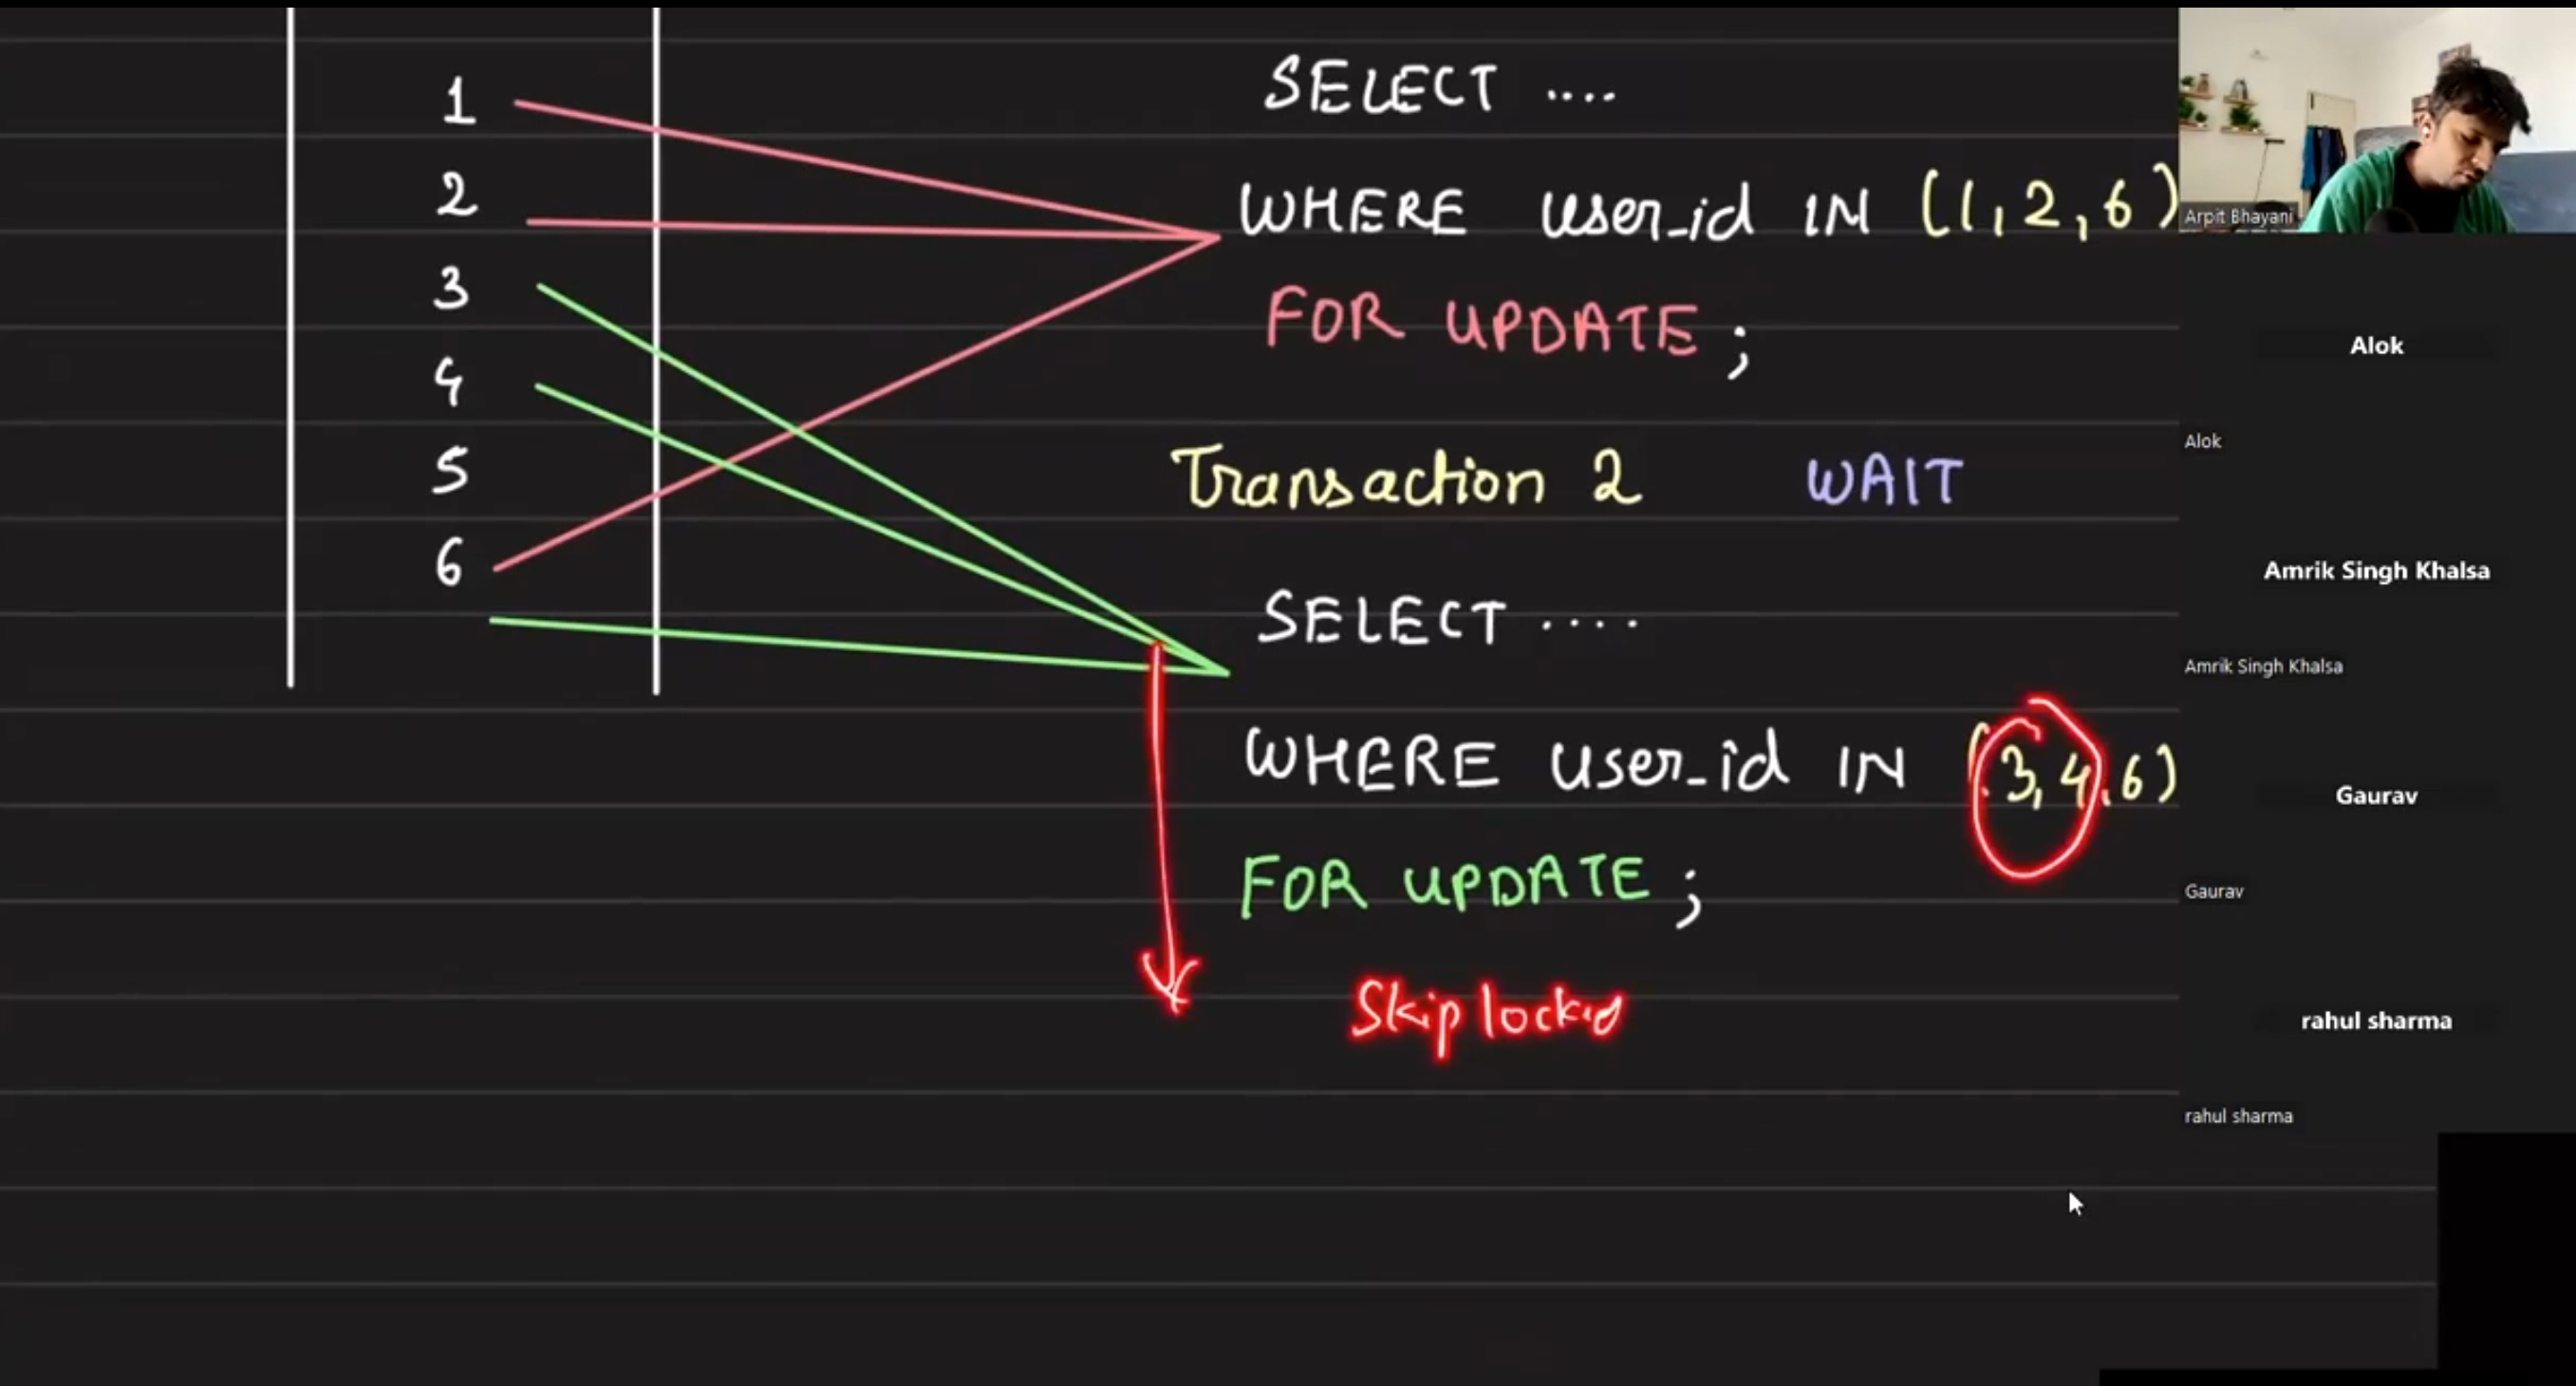 1
2
3
4
5
6
SELECT ....
WHERE user_id IN (1,2,6)
FOR UPDATE ;
Transaction 2 WAIT
SELECT ....
WHERE user_id IN (3,4,6)
FOR UPDATE ;
Skip locked
Arpit Bhayani
Alok
Alok
Amrik Singh Khalsa
Amrik Singh Khalsa
Gaurav
Gaurav
rahul sharma
rahul sharma